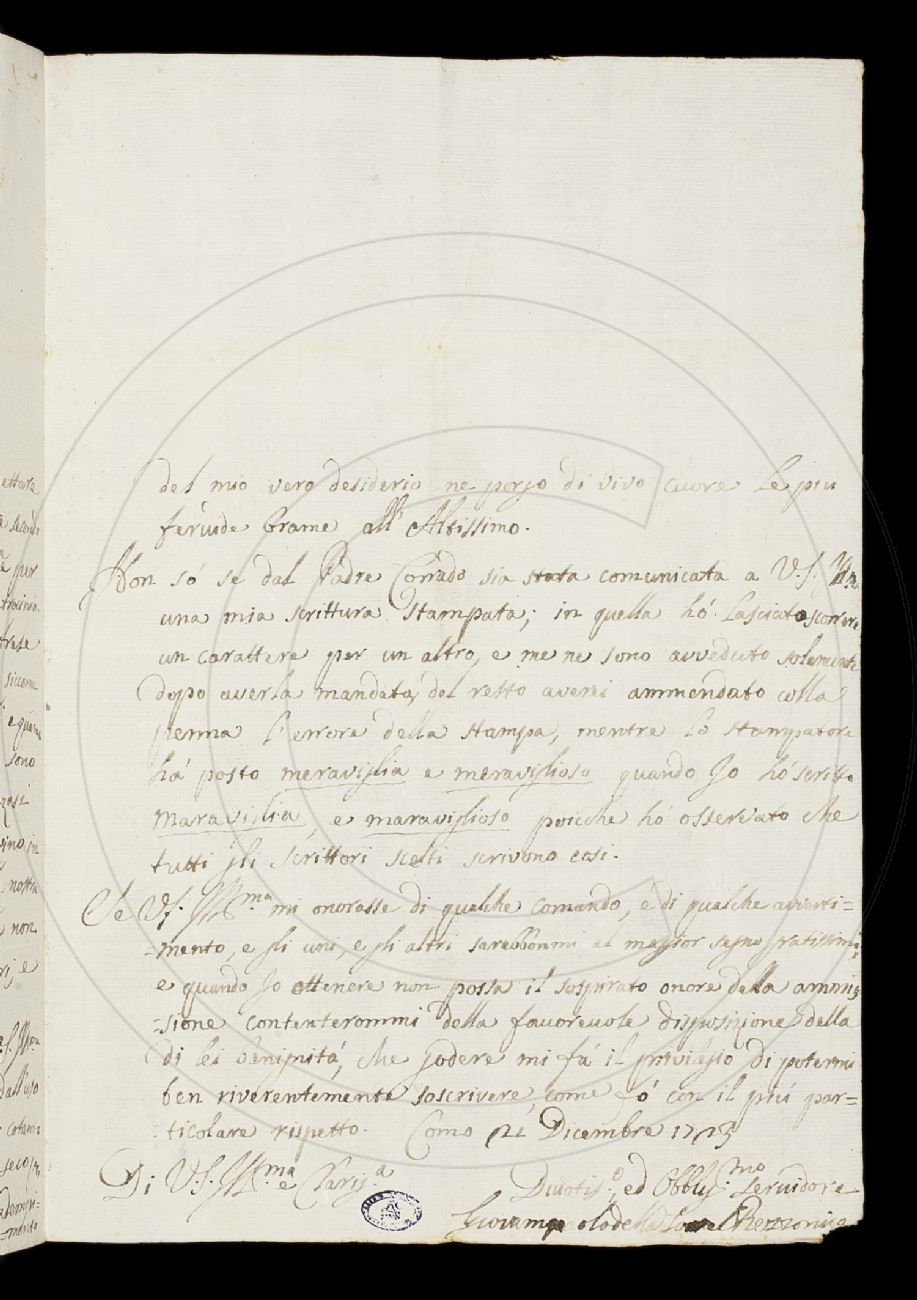 del mio vero desiderio ne porgo di vivo cuore le piu
fervide brame all' Altissimo.
Non só se dal Padre Corrado sia stata comunicata a V. S. Illma
una mia scrittura stampata; in quella hó lasciato scorrere
un carattere per un altro, e me ne sono avveduto solamente
dopo averla mandata, del resto averei ammendato colla
penna l'errore della stampa, mentre lo stampatore
há posto meraviglia e meraviglioso quando Jo hó scritto
maraviglia, e maraviglioso poicche hó osservato che
tutti gli scrittori scelti scrivono cosi.
Se VS. Illma mi onorasse di qualche comando, e di qualche averti=
=mento, e gli uni, e gli altri sarebbonmi al maggior segno gratissimi,
e quando Jo ottenere non possa il sospirato onore della ammis
=sione contenterommi della favorevole disposizione della
di lei benignitá, che godere mi fá il privilegio di potermi
ben riverentemente soscrivere, come fó con il piú par=
=ticolare rispetto. Como Dicembre
Di V.S. Illma e Chariss.a
Divotis.o ed Obblig.mo Servidore
della Rezzonico